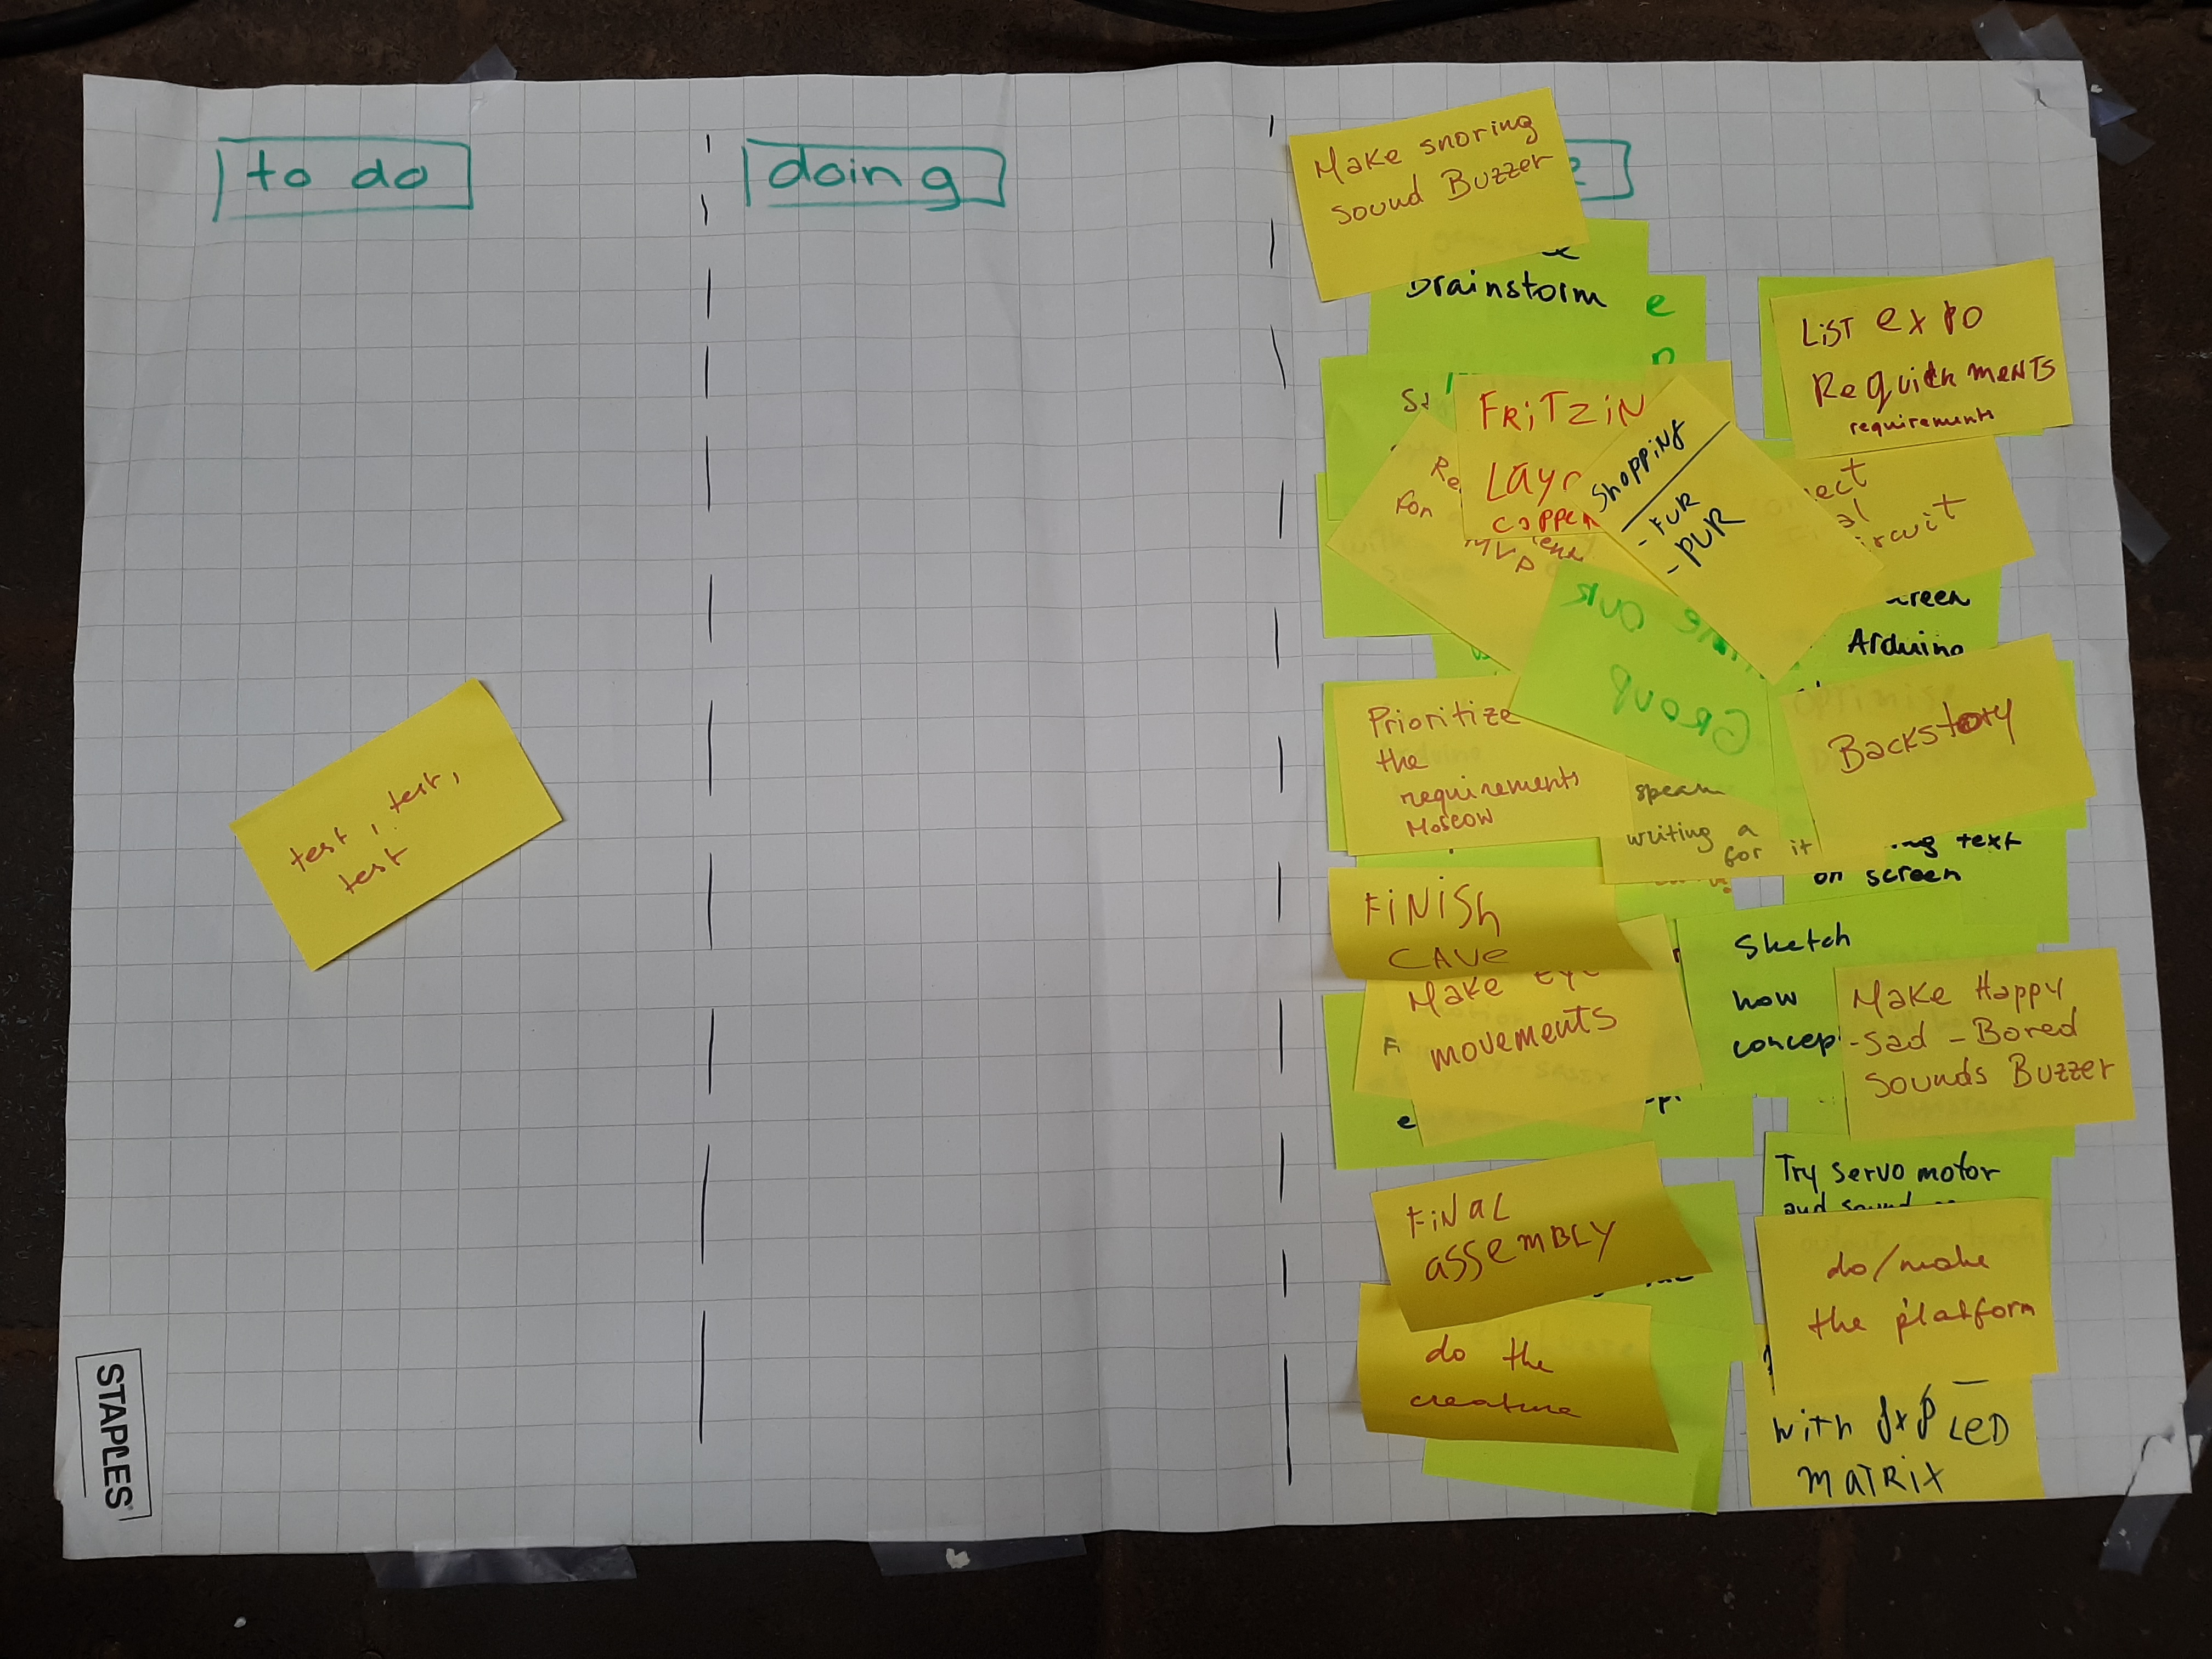 to do
doing
test, test,
test
Make snoring
sound Buzzer
brainstorm
LiST expo
RequirkmeNTS
requirements
FRiTZiN
Layr
coppe
Shopping
- FUR
- PUR
ircuit
Arduino
me our
Group
Prioritize
the
requirements
Moscow
Backstory
writing a
for it
text
on screen
FiNiSh
CAVe
Make eye
movements
Sketch
how
concep
Make Happy
-Sad - Bored
Sounds Buzzer
FiNaL
aSSeMBLY
Try servo motor
and sound
do/make
the platform
do the
creature
with 8x8 LeD
MATRiX
STAPLES